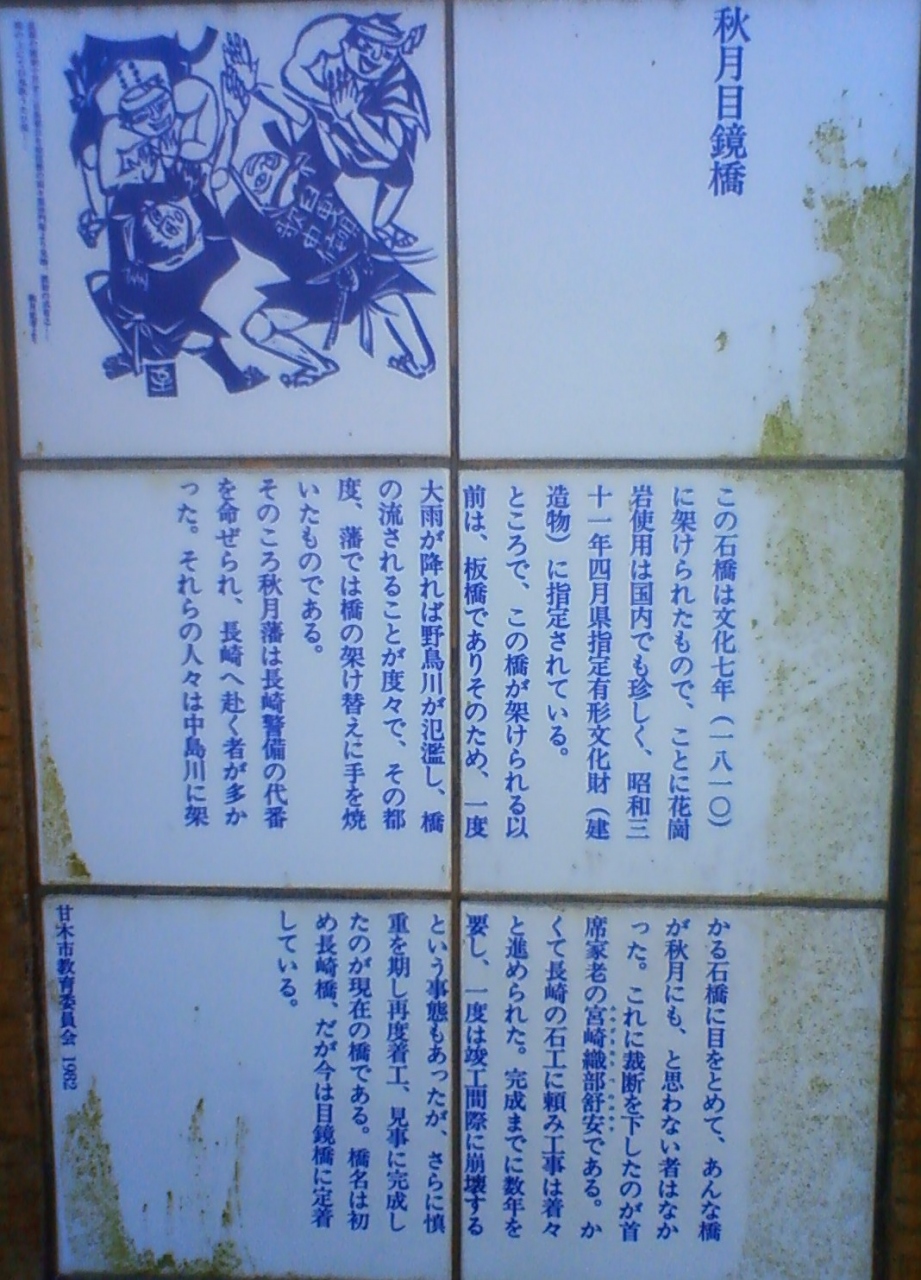 秋月目鏡橋
この石橋は文化七年（一八一〇）
に架けられたもので、ことに花崗
岩使用は国内でも珍しく、昭和三
十一年四月県指定有形文化財（建
造物）に指定されている。
ところで、この橋が架けられる以
前は、板橋でありそのため、一度
大雨が降れば野鳥川が氾濫し、橋
の流されることが度々で、その都
度、藩では橋の架け替えに手を焼
いたものである。
そのころ秋月藩は長崎警備の代番
を命ぜられ、長崎へ赴く者が多か
った。それらの人々は中島川に架
かる石橋に目をとめて、あんな橋
が秋月にも、と思わない者はなか
った。これに裁断を下したのが首
席家老の宮崎織部舒安である。か
くて長崎の石工に頼み工事は着々
と進められた。完成までに数年を
要し、一度は竣工間際に崩壊する
という事態もあったが、さらに慎
重を期し再度着工、見事に完成し
たのが現在の橋である。橋名は初
め長崎橋、だが今は目鏡橋に定着
している。
甘木市教育委員会 1982